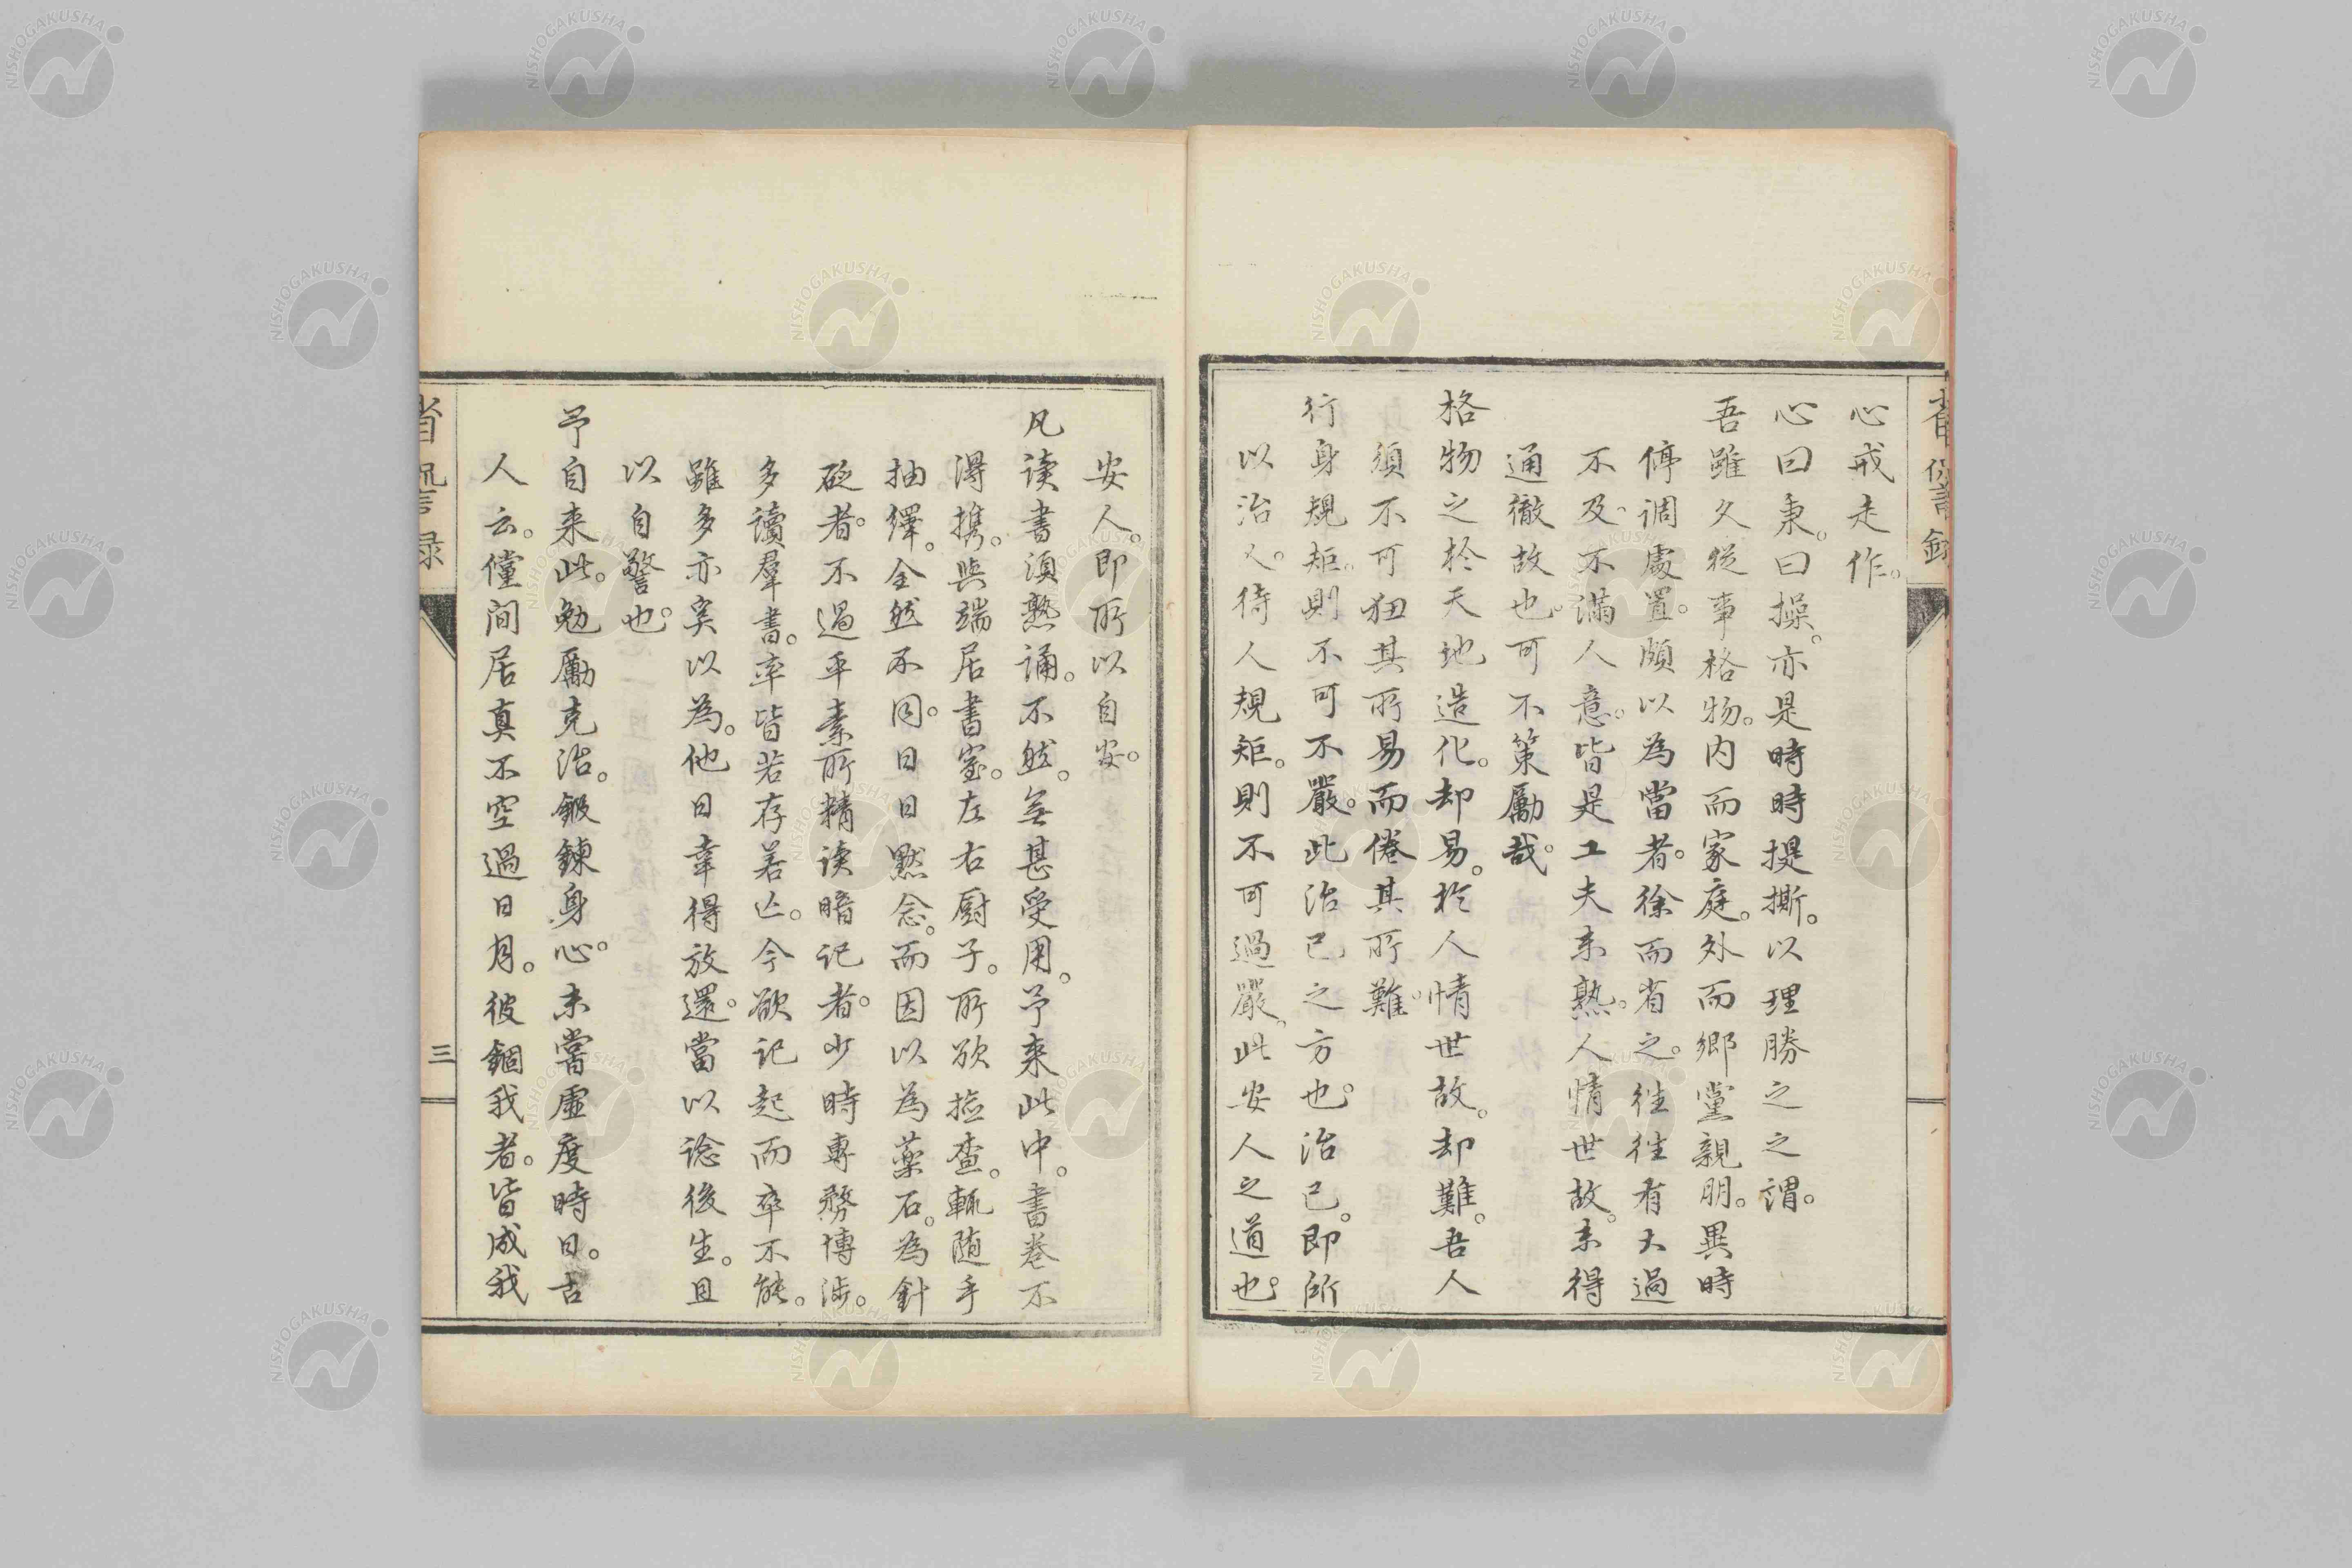 省諐録
心戒走作。
心曰秉。曰操。亦是時時提撕。以理勝之之謂。
吾雖久從事格物。内而家庭。外而鄉黨親朋。異時
停調處置。頗以為當者。徐而省之。往往有大過
不及、不滿人意。皆是工夫未熟。人情世故。未得
通徹故也。可不策勵哉。
格物之於天地造化。却易。於人情世故。却難。吾人
須不可狃其所易而倦其所難。
行身規矩。則不可不嚴。此治己之方也。治己。即所
以治人。待人規矩。則不可過嚴。此安人之道也。
安人。即所以自安。
凡读書須熟誦。不然。無甚受用。予来此中。書巻不
得携。與端居書室。左右厨子。所欲撿查。輒随手
抽繹。全然不同。日日黙念。而因以為藥石。為針
砭者。不過平素所精读暗記者。少時專務博渉。
多讀羣書。率皆若存若亡。今欲記起而卒不能。
雖多亦奚以為。他日幸得放還。當以諗後生。且
以自警也。
予自来此。勉勵克治。鍛鍊身心。未嘗虚度時日。古
人云。僮間居真不空過日月。彼錮我者。皆成我
省諐録
三